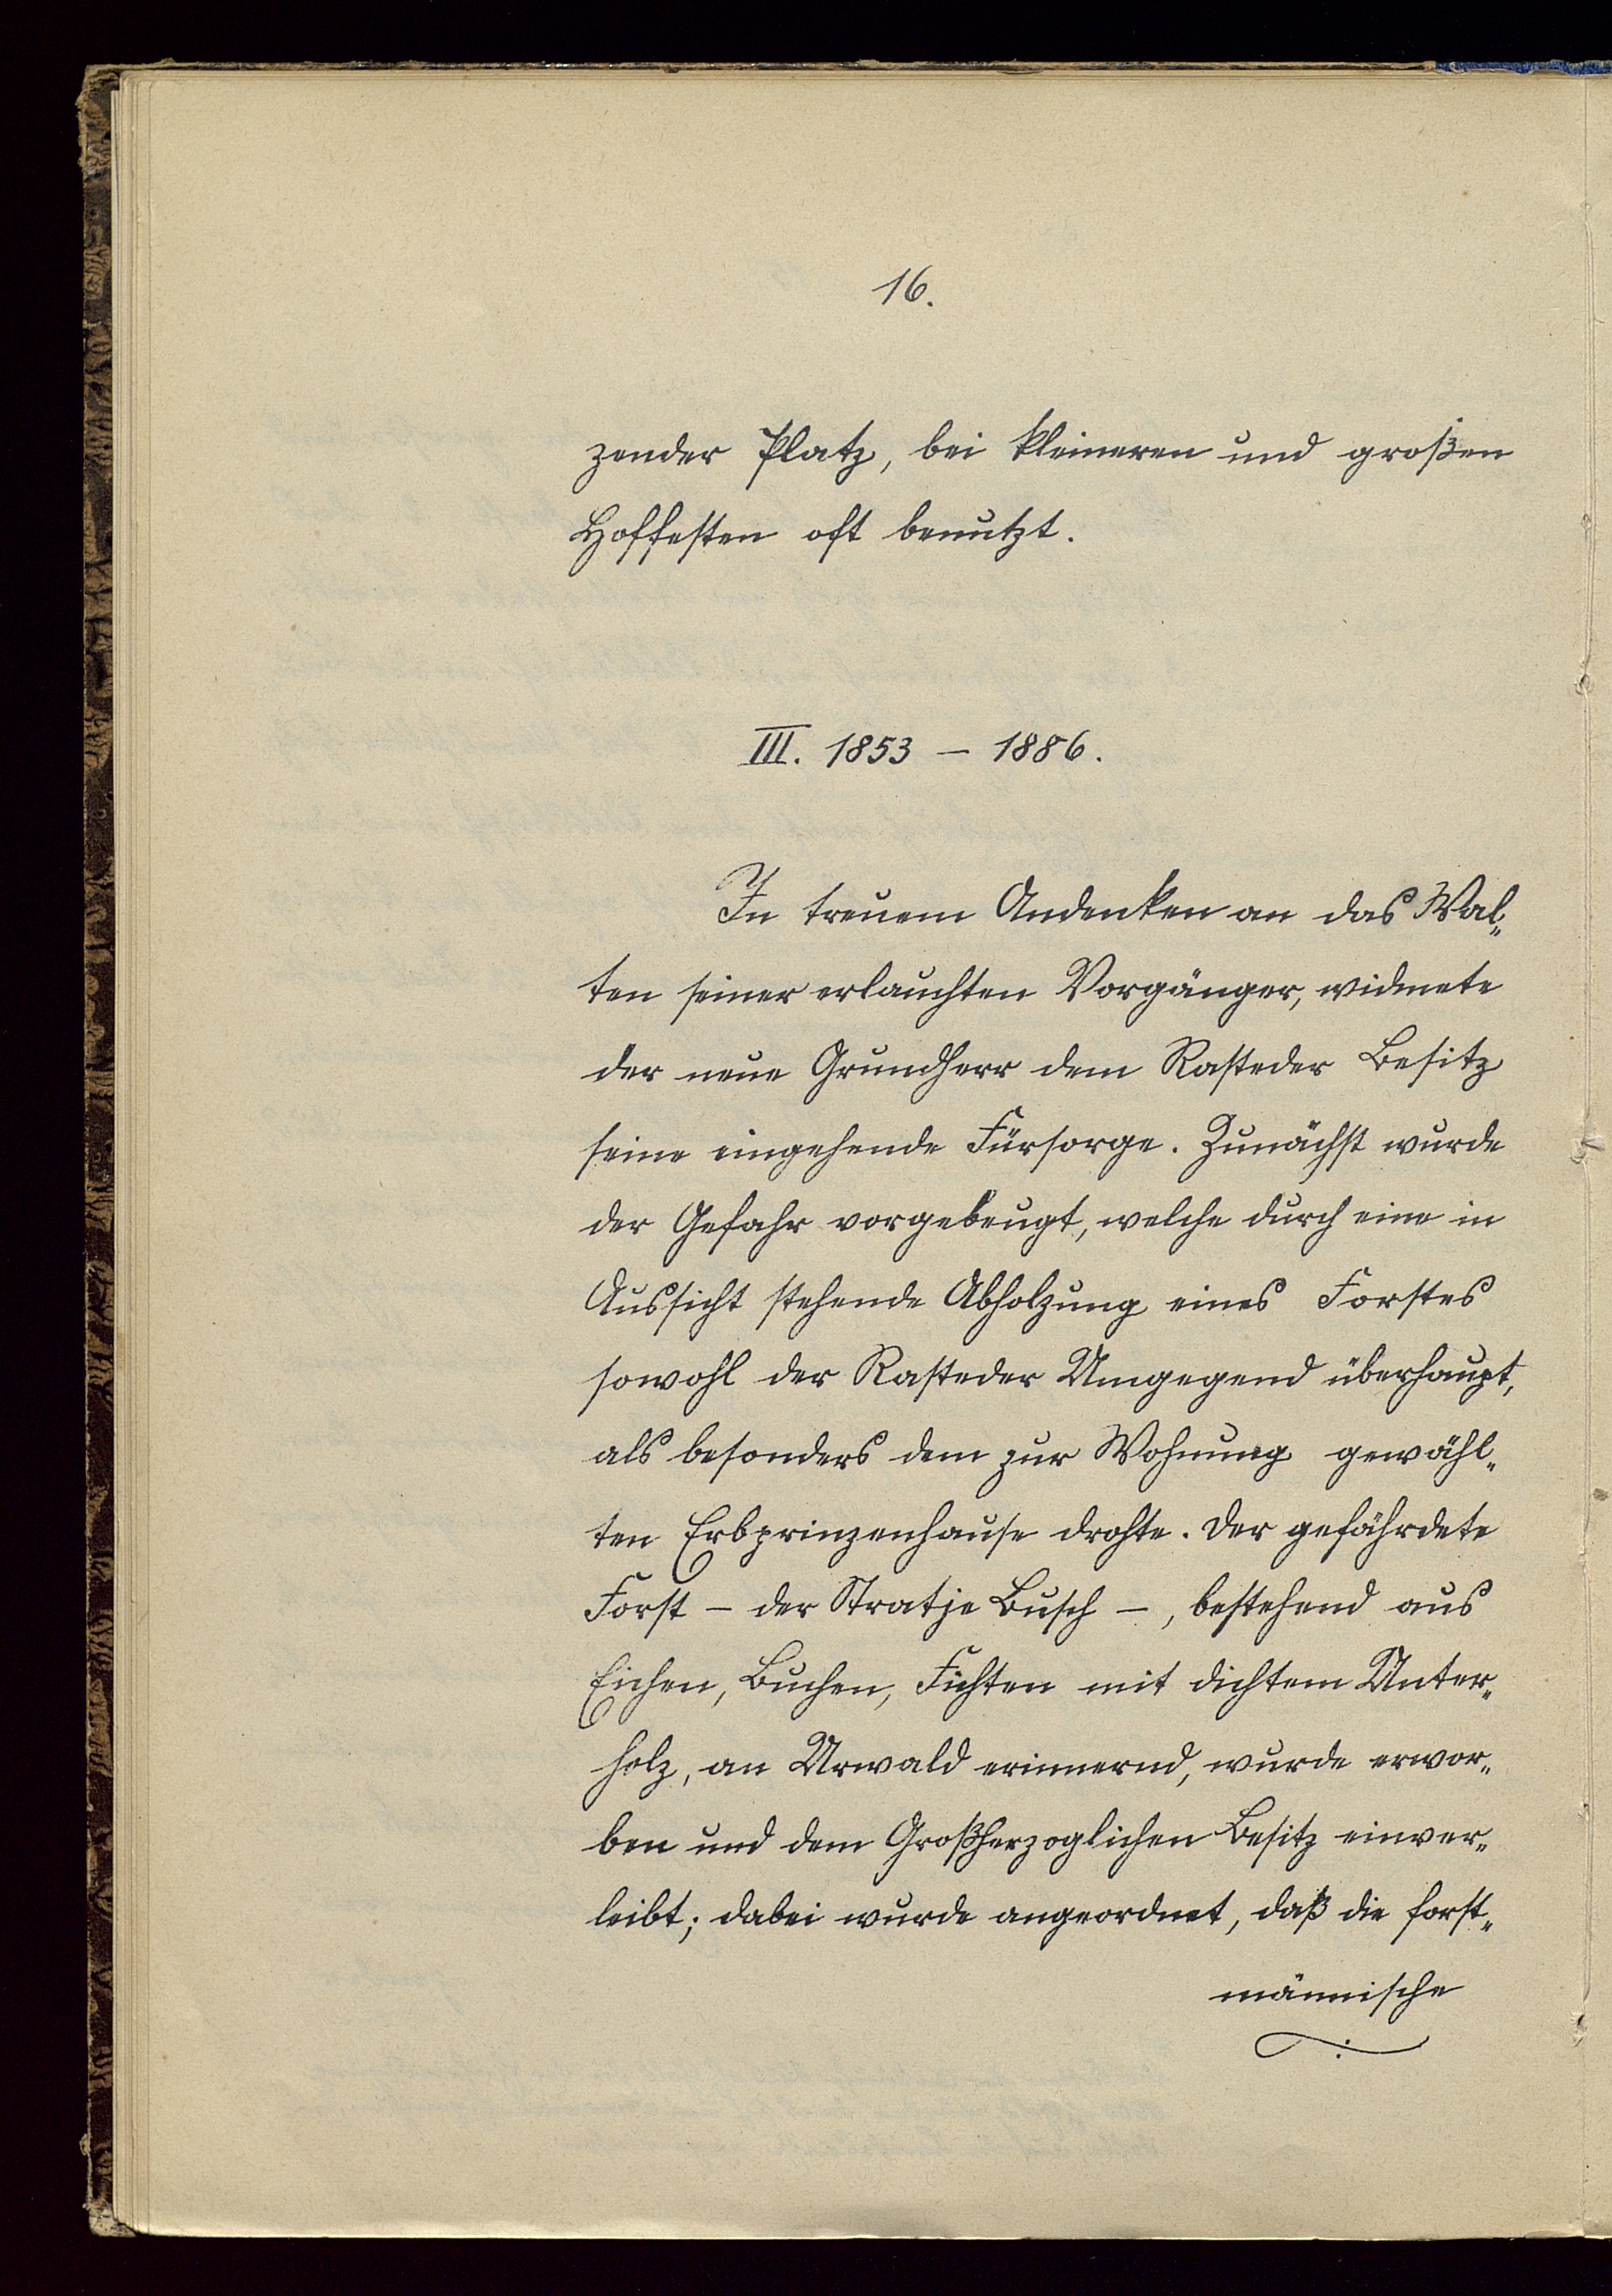 16.
zender Platz, bei kleineren und großen
Hoffesten oft benutzt.
III. 1853 – 1886.
In treuem Andenken an das Wal„
ten seiner erlauchten Vorgänger, widmete
der neue Grundherr dem Rasteder Besitz
seine eingehende Fürsorge. Zunächst wurde
der Gefahr vorgebeugt, welche durch eine in
Aussicht stehende Abholzung eines Forstes
sowohl der Rasteder Umgegend überhaupt,
als besonders dem zur Wohnung gewähl„
ten Erbprinzenhause drohte. Der gefährdete
Forst – der Stratje Busch –, bestehend aus
Eichen, Buchen, Fichten mit dichtem Unter„
holz, an Urwald erinnernd, wurde erwor„
ben und dem Großherzoglichen Besitz einver„
leibt; dabei wurde angeordnet, daß die forst„
männische